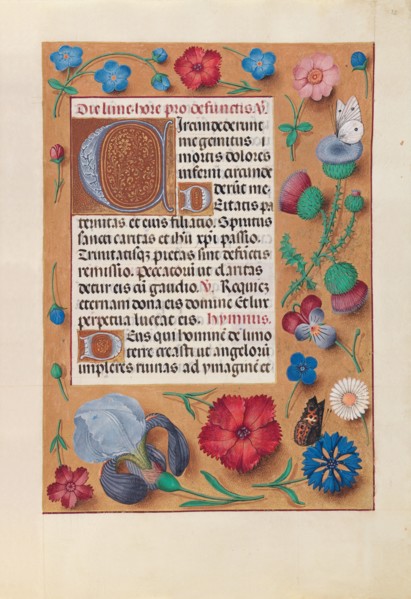 Die lune. hore pro defunctis. V.
Circumdederunt
me gemitus
mortis dolores
inferni circunde
derūt me.
Deitatis pa
ternitas et eius filiatio. Spiritus
sancti caritas et ihū xpi passio.
Trinitatisq; pietas sint defūctis
remissio. Peccatorū ut claritas
detur eis cū gaudio. V. Requiē
eternam dona eis domine Et lux
perpetua luceat eis. Hymnus.
Deus qui hominē de limo
terre creasti ut angelorū
impleres ruinas ad ymaginē et